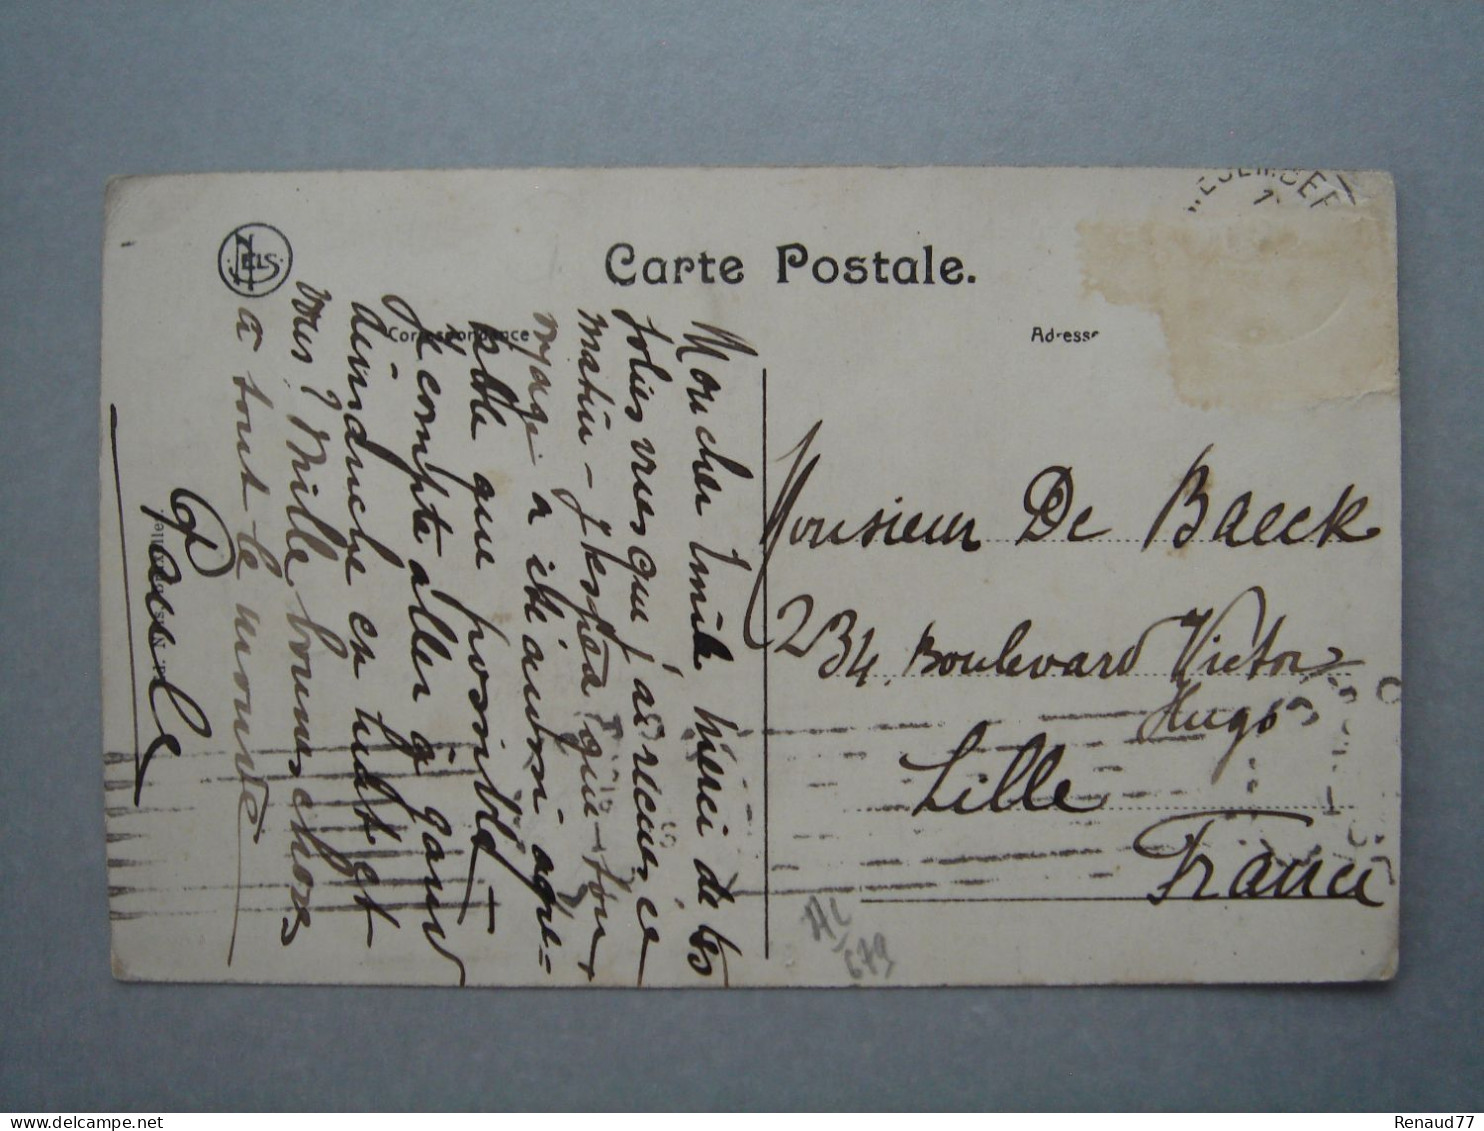 NELS
Carte Postale.
Correspondance
Adresse
Mon cher Emile Merci de tes
jolies vues que j'ai recues ce
matin - j'espère que ton
voyage a été aussi agré-
able que possible
Je compte aller à gand
dimanche en huit et
vous? Mille bonnes choses
à tout le monde
Paule
Monsieur De Baeck
234, Boulevard Victor
Hugo
Lille
France
679
Renaud77